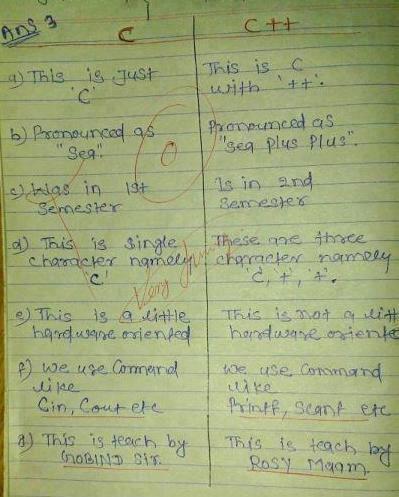 Ans 3
C
C++
a) This is Just
'C'
This is C
with '++'.
b) Pronounced as
"Sea".
Pronounced as
"Sea Plus Plus".
0
c) Was in 1st
Semester
Is in 2nd
Semester
d) This is single
character namely
'C'
These are three
character namely
'C, +, +.
Very
e) This is a little
hardware oriented
This is not a litt
hardware oriente
f) we use Command
like
Cin, Cout etc
we use Command
like
Printf, Scanf etc
g) This is teach by
GOBIND Sir.
This is teach by
ROSY Maam.